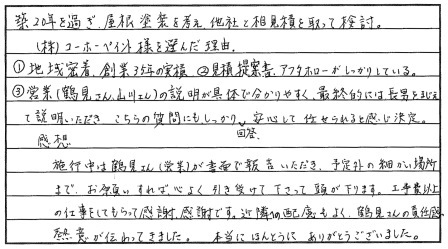 築20年を過ぎ、屋根塗装を考え他社と相見積を取って検討。
(株)コーホーペイント様を選んだ理由.
①地域密着.創業35年の実績 ②見積提案書.アフタホローがしっかりしている。
③営業(鶴見さん.山川さん)の説明が具体で分かりやすく、最終的には長男をまじえ
て説明いただき こちらの質問にもしっかり回答 安心して任せられると感じ決定。
感想
施行中は鶴見さん(営業)が書面で報告いただき、予定外の細かい場所
まで、お願いすれば心よく引き受けて下さって頭が下ります。工事費以上
の仕事をしてもらって感謝.感謝です。近隣への配慮もよく、鶴見さんの責任感
熱意が伝わってきました。 本当にほんとうに ありがとうございました。